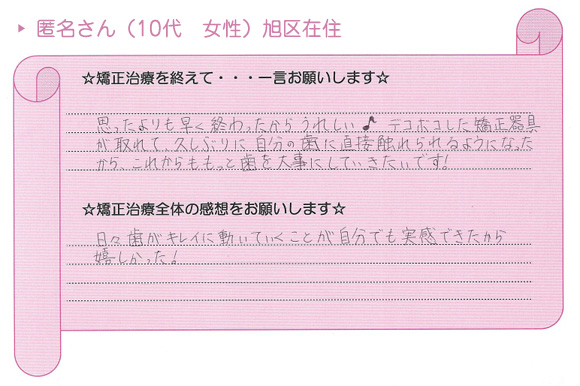 ▶ 匿名さん（10代　女性）旭区在住
☆矯正治療を終えて・・・一言お願いします☆
思ったよりも早く終わったからうれしい♪ デコボコした矯正器具
が取れて、久しぶりに自分の歯に直接触れられるようになった
から、これからももっと歯を大事にしていきたいです!
☆矯正治療全体の感想をお願いします☆
日々歯がキレイに動いていくことが自分でも実感できたから
嬉しかった!